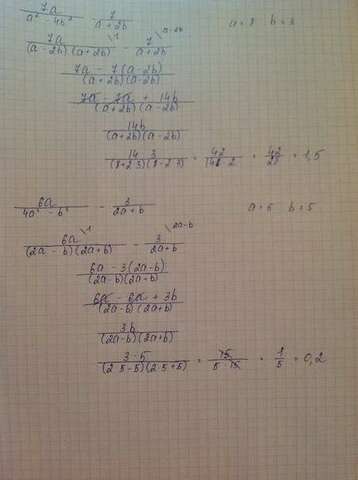 7a / (a² - 4b²) - 7 / (a + 2b)    a = 8  b = 3
7a / ((a - 2b)(a + 2b)) \1 - 7 / (a + 2b) \a - 2b
(7a - 7(a - 2b)) / ((a + 2b)(a - 2b))
(7a - 7a + 14b) / ((a + 2b)(a - 2b))
14b / ((a + 2b)(a - 2b))
14 · 3 / ((8 + 2·3)(8 - 2·3)) = 42 / (14 · 2) = 42 / 28 = 1,5
6a / (4a² - b²) - 3 / (2a + b)    a = 5  b = 5
6a / ((2a - b)(2a + b)) \1 - 3 / (2a + b) \2a - b
(6a - 3(2a - b)) / ((2a - b)(2a + b))
(6a - 6a + 3b) / ((2a - b)(2a + b))
3b / ((2a - b)(2a + b))
3 · 5 / ((2·5 - 5)(2·5 + 5)) = 15 / (5 · 15) = 1 / 5 = 0,2